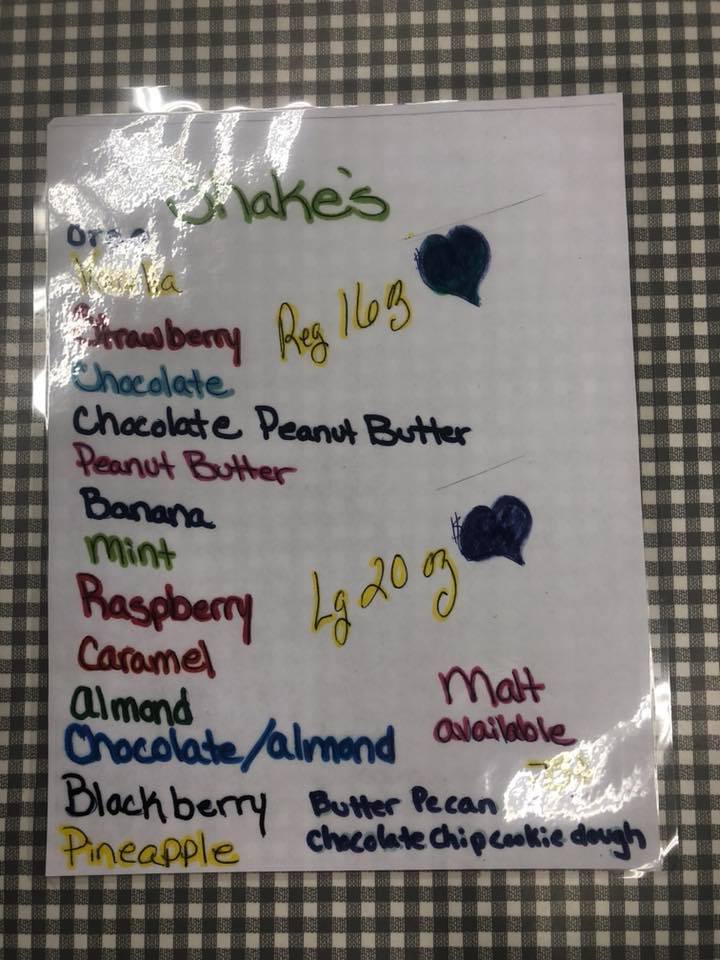 Shake's
Vanilla
Strawberry
Reg 16 oz
Chocolate
Chocolate Peanut Butter
Peanut Butter
Banana
mint
$
Lg 20 oz
Raspberry
Caramel
almond
Malt
available
Chocolate/almond
Blackberry
Pineapple
Butter Pecan
chocolate chip cookie dough